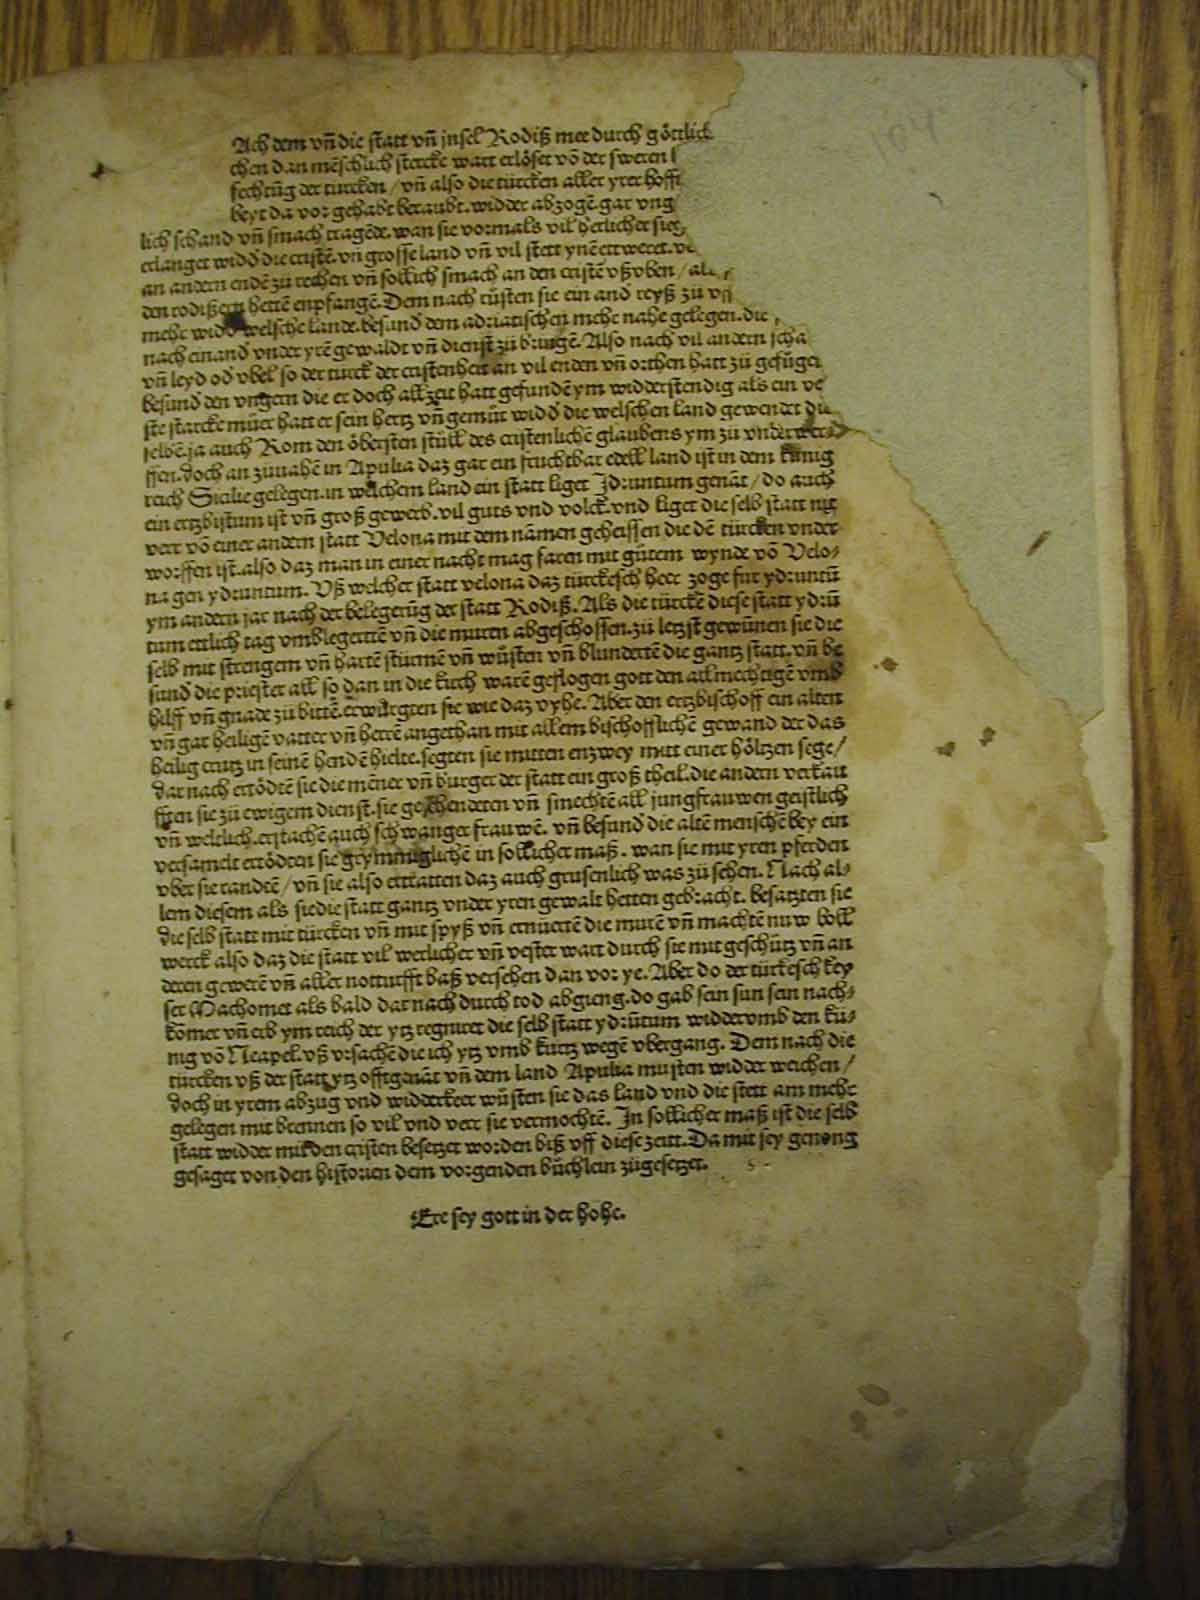 Ach dem vn̄ die statt vn̄ jnsel Rodiß mee durch göttlich
chen dan mēschlich stercke wart erlöset vō der sweren
fechtūg der turcken / vn̄ also die türcken aller yrer hofft
beyt da vor gehabt beraubt. widder abzogē gar vng
lich schand vn̄ smach tragēde. wan sie vormals vil herlicher sieg
erlanget widd̄ die cristē. vn̄ grosse land vn̄ vil stett ynē ettweret.
an andern endē zu rechen vn̄ sollich smach an den cristē vßvben /
den rodißern hettē enpfangē. Dem nach rüsten sie ein and̄ reyß zü
mehr widd̄ welsche lande. besund̄ dem adriatischen mehe nahe gelegen. die
nach einand̄ vnder yrē gewaldt vn̄ dienst zü bringē. Also nach vil andern scha
vn̄ leyd od̄ vbel so der turck der cristenheit an vil enden vn̄ orthen hatt zü gefüget
besund̄ den vngern die er doch allzeit hatt gefundē ym widderstendig als ein ve
ste starcke müer hatt er sein hertz vn̄ gemüt widd̄ die welschen land gewendet die
selbē. ja auch Rom den öbersten stůll des cristenlichē glaubens ym zu vnderwer
ffen. doch an zünahē in Apulia daz gar ein fruchtbar edell land ist in dem künig
reich Sicilie gelegen. in welchem land ein statt liget Jdruntum genāt / do auch
ein ertzbistum ist vn̄ groß gewerb. vil guts vnd volck. vnd liget die selb statt nit
verr vō einer andern statt Velona mit dem nāmen geheissen die dē türcken vnder
worffen ist. also daz man in einer nacht mag faren mit gůtem wynde vō Velo⸗
na gen ydruntum. Vß welcher statt velona daz türckesch heer zoge fur ydruntū
ym andern jar nach der belegerūg der statt Rodiß. Als die türckē diese statt ydrū
tum ettlich tag vmblegertē vn̄ die muren abgeschossen. zü letzst gewūnen sie die
selb mit strengem vn̄ hartē stürmē vn̄ wůsten vn̄ blundertē die gantz statt. vn̄ be
sund̄ die priester all so dan in die kirch warē geflogen gott den allmechtigē vmb
hilff vn̄ gnade zü bittē. erwürgten sie wie daz vyhe. Aber den ertzbischoff ein alten
vn̄ gar heiligē vatter vn̄ herrē angethan mit allem bischofflichē gewand der das
heilig crutz in seinē hendē hielte. segten sie mitten enzwey mitt einer höltzen sege /
dar nach ertödtē sie die mēner vn̄ burger der statt ein groß theil. die andern verkau
fften sie zü ewigem dienst. sie geschendeten vn̄ smechtē all jungfrauwen geistlich
vn̄ weltlich. erstachē auch schwanger frauwē. vn̄ besund̄ die altē menschē bey ein
versamelt ertödten sie grymmiglichē in sollicher maß. wan sie mit yren pferden
vber sie randtē / vn̄ sie also ertratten daz auch grusenlich was zü sehen. Nach al⸗
lem diesem als sie die statt gantz vnder yren gewalt hetten gebracht. besatzten sie
die selb statt mit türcken vn̄ mit spyß vn̄ ernüertē die murē vn̄ machtē nuw boll
werck also daz die statt vil werlicher vn̄ vester wart durch sie mit geschütz vn̄ an
deren gewerē vn̄ aller notturfft baß versehen dan vor ye. Aber do der türkesch key
ser Machomet als bald dar nach durch tod abgieng. do gab sein sun sein nach⸗
kōmer vn̄ erb ym reich der ytz regniret die selb statt ydrūtum widdervmb den kü⸗
nig vō Neapel. vß vrsachē die ich ytz vmb kurtz wegē vbergang. Dem nach die
türcken vß der statt ytz offtgenāt vn̄ dem land Apulia musten widder weichen /
doch in yrem abzug vnd widderkeer wůsten sie das land vnd die stett am mehe
gelegen mit brennen so vil vnd verr sie vermochtē. In sollicher maß ist die selb
statt widder mit den cristen besetzet worden biß vff diese zeitt. Da mit sey genong
gesaget von den historien dem vorgenden bůchlein zügesetzet.
Ere sey gott in der hohe.
104